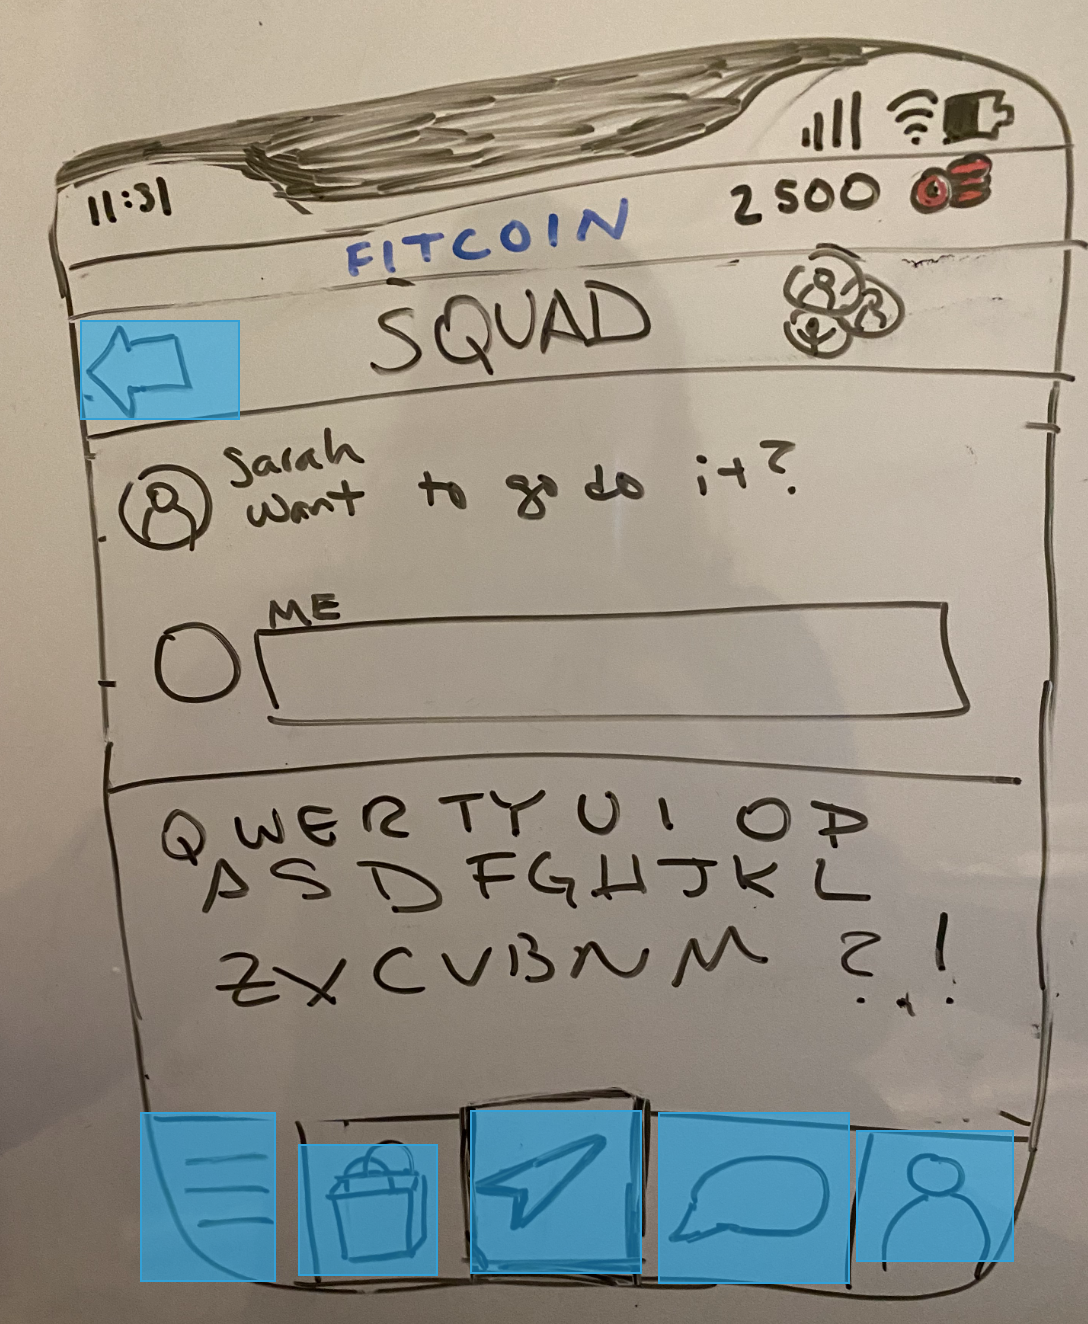 11:31
2500
FITCOIN
SQUAD
Sarah
want to go do it?
ME
QWERTYUIOP
ASDFGHJKL
ZXCVBNM?.!